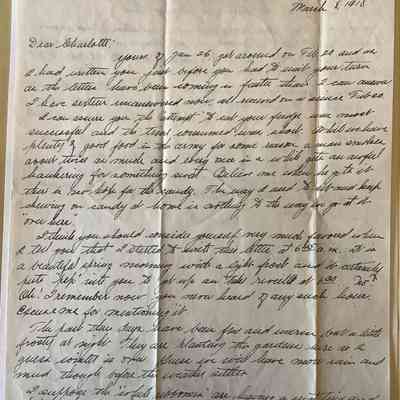 March 8, 1918
Dear Charlotte:
Yours of Jan 26 got around on Feb 20 and as
I had written you just before you had to wait your turn
as the letters have been coming in faster than I can answer
I have sixteen unanswered now, all received since Feb 20.
I can assure you the attempt to eat your fudge was most
successful and the time consumed was short. While we have
plenty of good food in the army for some reason a man smokes
about twice as much and every once in a while gets an awful
hankering for something sweet. Believe me when he gets it
there is no hope for the candy. The way I used to eat and keep
chewing on candy at home is nothing to the way we go at it
"over here".
I think you should consider yourself very much favored when
I tell you that I started to write this letter at 6 a.m. It is
a beautiful spring morning with a light frost and it certainly
puts "pep" into you to get up and take reveille at
Oh! I remember now you never heard of any such hour.
Excuse me for mentioning it.
The past three days have been fine and warm, but a little
frosty at night. They are planting the gardens here so I
guess winter is over. I guess you will have more rain and
mud though before the weather settles.
I suppose the women are having a